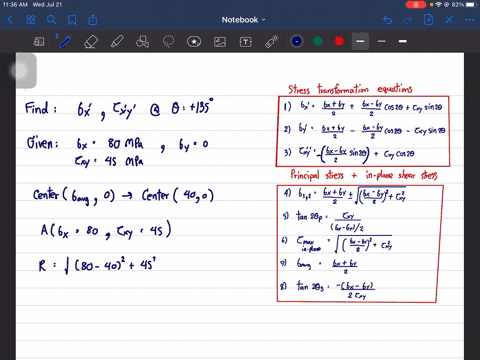 11:36 AM Wed Jul 21
82%
Notebook
Find: σx' , τx'y' @ θ: +135°
Given: σx = 80 MPa , σy = 0
τxy = 45 MPa
Center(σavg, 0) → Center(40,0)
A(σx = 80 , τxy = 45)
R = √(80-40)² + 45²
Stress transformation equations
1) σx' = (σx+σy)/2 + (σx-σy)/2 cos2θ + τxy sin2θ
2) σy' = (σx+σy)/2 - (σx-σy)/2 cos2θ - τxy sin2θ
3) τx'y' = -((σx-σy)/2 sin2θ) + τxy cos2θ
Principal stress + in-plane shear stress
4) σ1,2 = (σx+σy)/2 ± √((σx-σy)/2)² + τ²xy
5) tan 2θp = τxy/((σx-σy)/2)
6) τmax in-plane = √((σx-σy)/2)² + τ²xy
7) σavg = (σx+σy)/2
8) tan 2θs = -(σx-σy)/2τxy